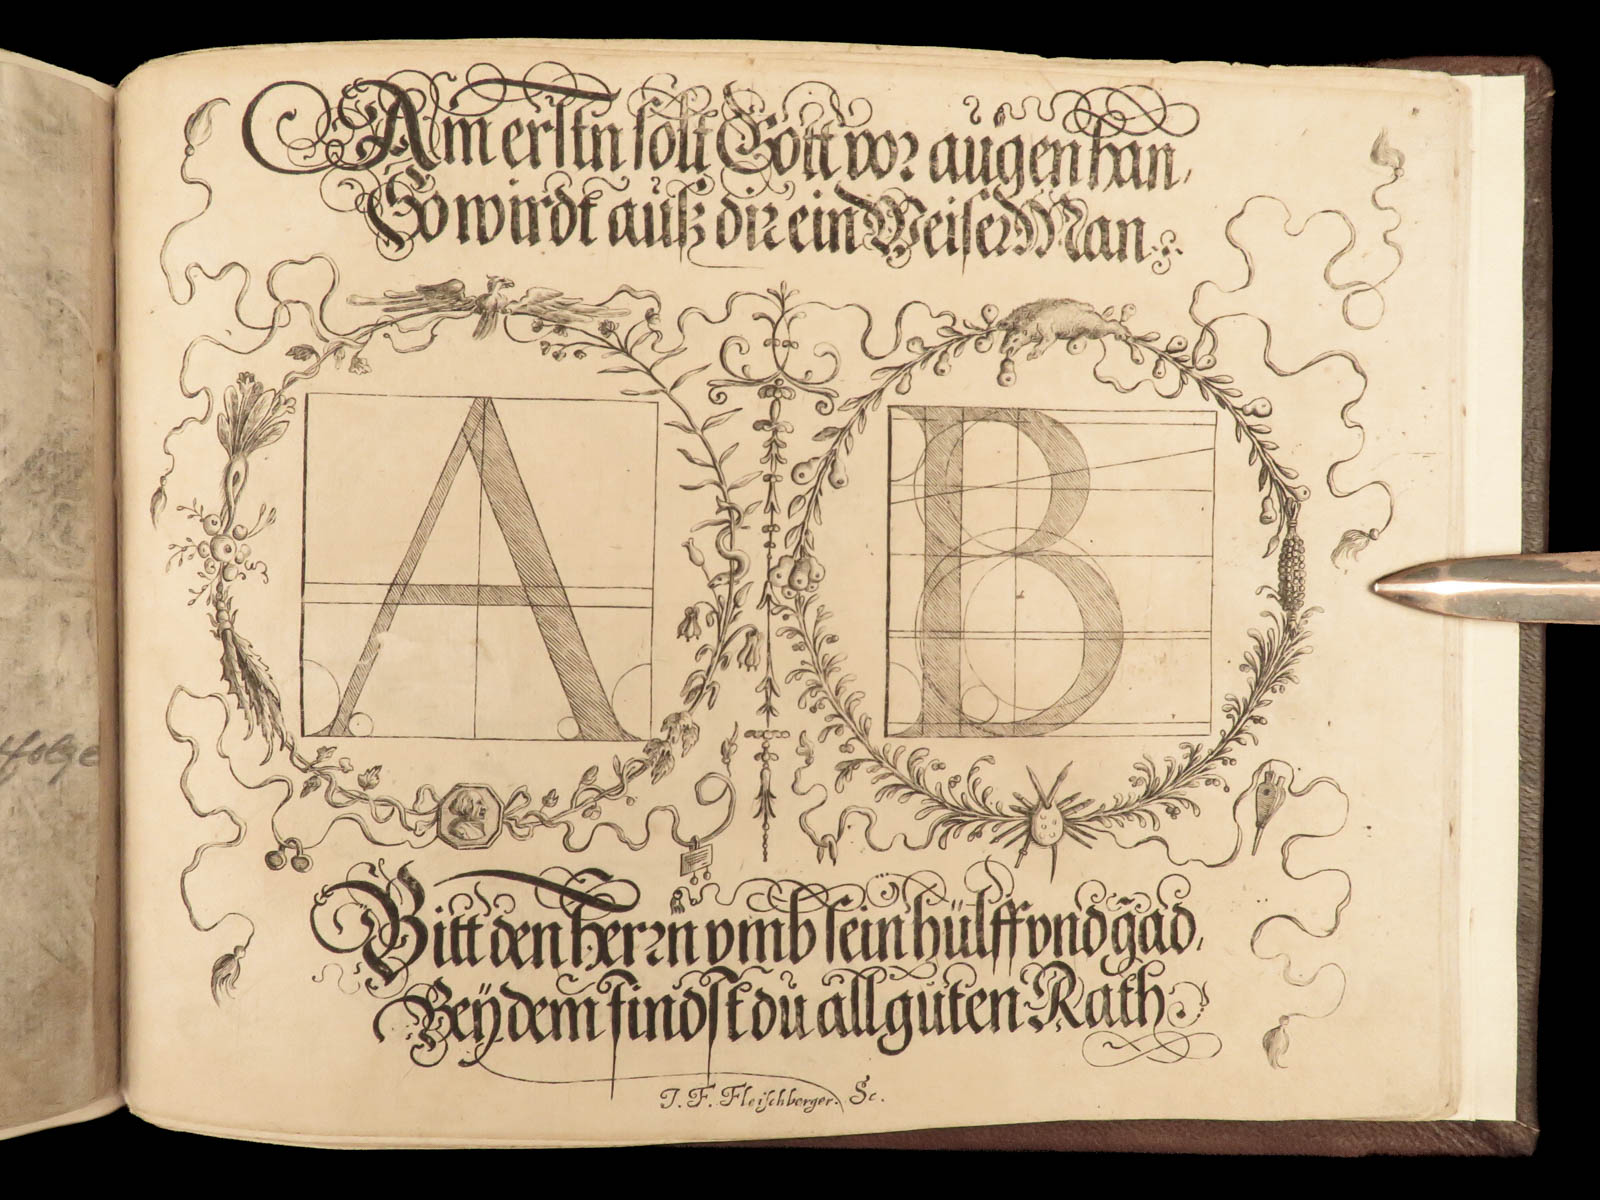 Am erstn solt Gott vor augen han,
So wirdt auß dir ein Weiser Man.
A B
Bitt den herrn vmb sein hülff vnd gad,
Beÿ dem findst du all guten Rath
J. F. Fleischberger. Sc.
folge